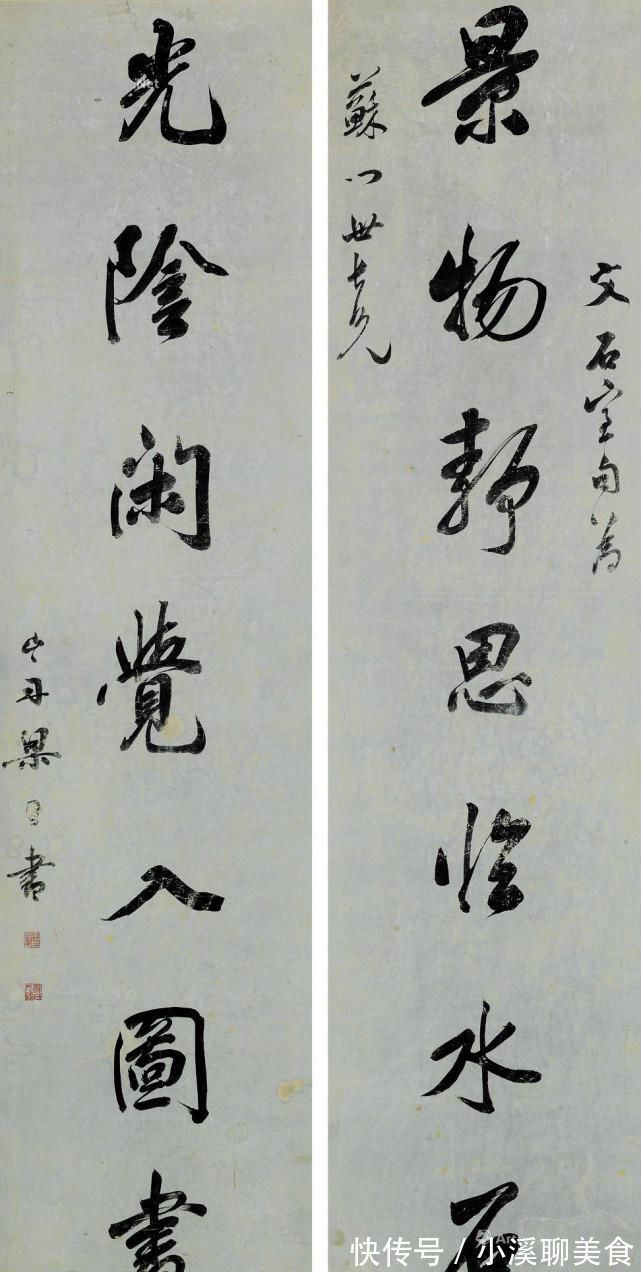 文石室句為
景物靜思臨水石
蘇門世長兄
光陰閑覺入圖書
山舟梁同書
快传号 / 小溪聊美食